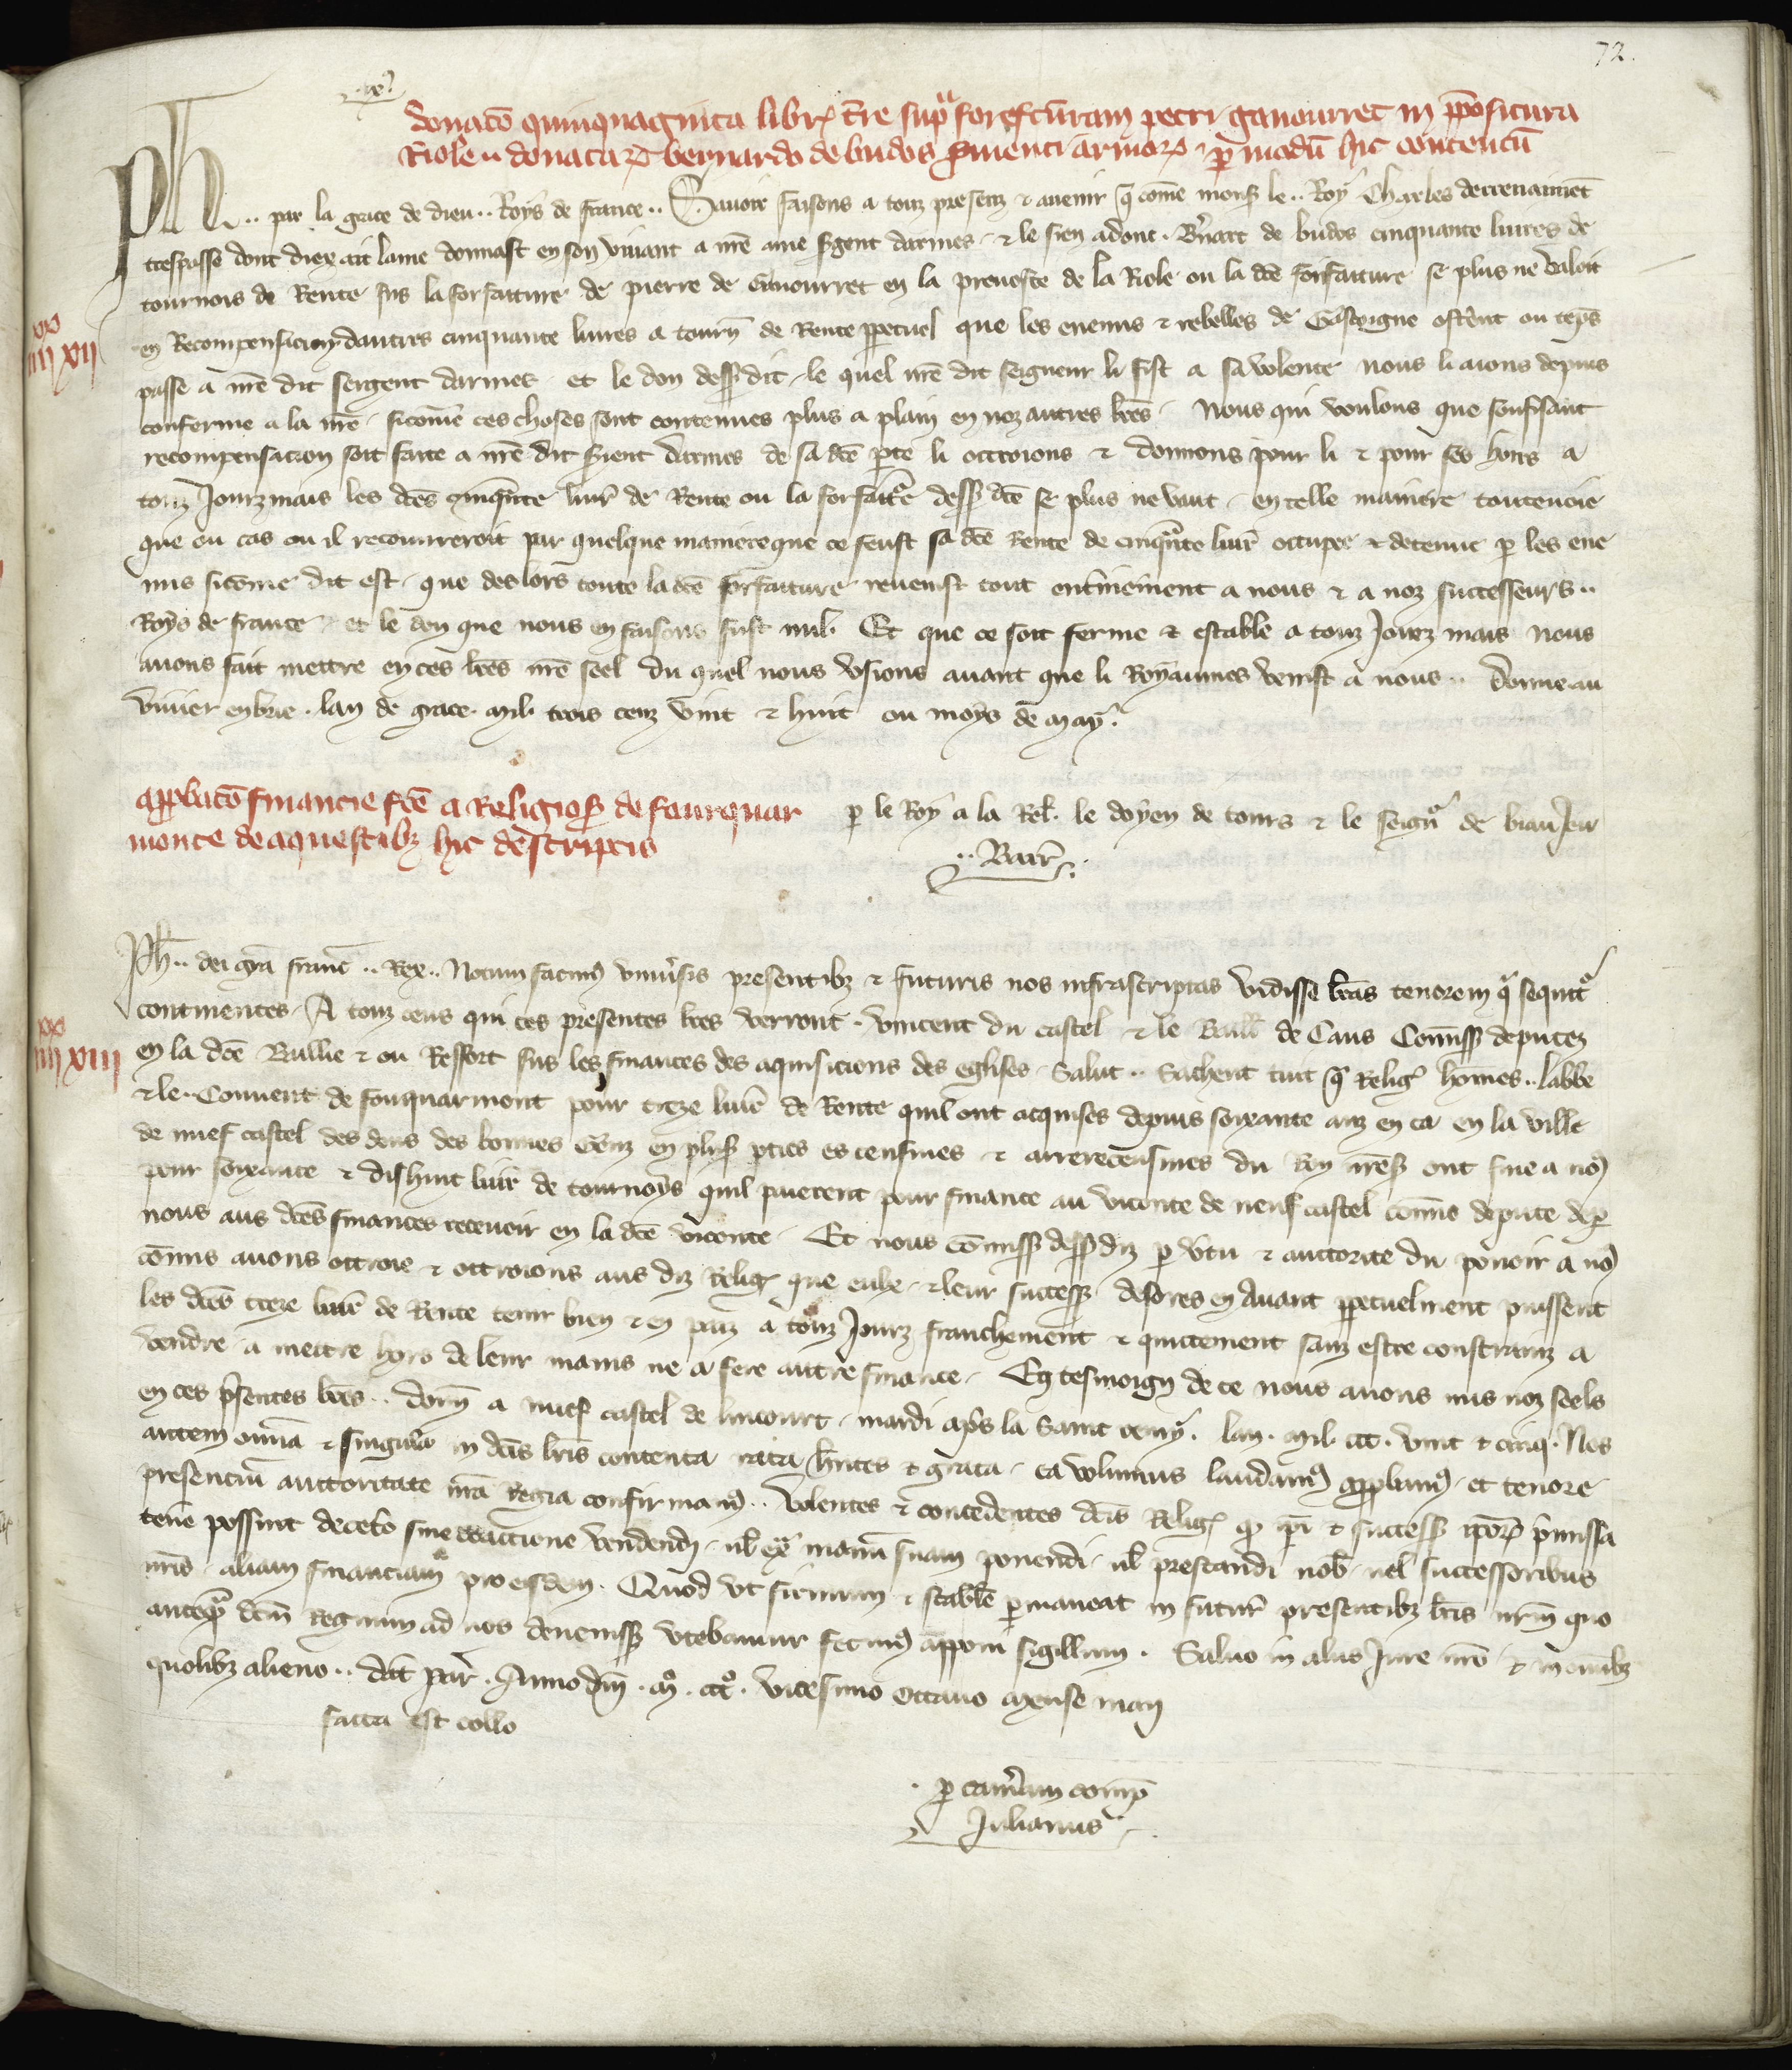 72.
donaco quinquaginta libr tre supra forefcuram petri ganourret in pposicura
Riole donatar bernardo de budos svienti armor per modu hic contentu
Ph .. par la grace de dieu .. Roys de france .. Savoir faisons a touz presenz & avenir q come mons le .. Roy Charles derrenaimet
trespasse dont diex ait lame donnast en son vivant a nre ame sgent darmes & le sien adonc . Bnart de budos cinquante livres de
tournois de Rente sus la forfaiture de pierre de Ganourret en la prevoste de la Riole ou la dce forfaiture se plus ne valoit
en Recompensacion dautres cinquante livres a tourn de Rente ppetuel que les enemis & rebelles de Gascoigne ostent ou teps
passe a nre dit sergent darmes . et le don dess dit . le quel nre dit seigneur li fist a sa volente nous li aions depuis
conferme a la nre . sicome ces choses sont contenues plus a plain en noz autres lres . Nous qui voulons que souffisant
recompensacion soit faite a nre dit sient darmes de sa dce pte li octroions & donnons pour li & pour ses hoirs a
touz Jourzmais les dces cinqnte livr de Rente ou la forfaitre dess dce se plus ne vaut . en telle maniere toutevoie
que ou cas ou il recouvreroit par quelque maniere que ce feust sa dce Rente de cinqnte livr occupee & detenue p les ene
mis sicome dit est . que des lors toute la dce forfaiture revenist tout entinement a nous & a noz successeurs ..
Roys de france . et le don que nous en faisons fust nul . Et que ce soit ferme & estable a touz Jourz mais nous
avons fait mettre en ces lres nre seel du quel nous usions avant que li Royaumes venist a nous .. Donne au
vivier en brie . lan de grace . mil trois cenz vint & huit ou moys de may .
xx
iiii xii
approbaco financie fce a Religios de fourquar
monte de aquestibz hic descriptis
p le Roy a la Rel . le doyen de tours & le seignr de biauJeu
.. Barr ..
xx
iiii xiii
Ph .. dei gra franc .. Rex .. Notum facim univsis presentibz & futuris nos infrascriptas vidisse lras tenorem q sequitr
continentes . A touz ceus qui ces presentes lres verront . vincent du castel & le Baill de Caus Comiss deputez
en la dce Baillie & ou Ressort sus les finances des aquisicions des eglises . Salut .. Sachent tuit q Relig homes .. labbe
& le .. Couvent de fouquarmont pour treze livr de Rente quil ont acquises depuis soixante anz en ca en la ville
de nuef castel des dons des bonnes genz en plus pties es censives & arrerecensives du Roy nres ont fine a no
pour soixante & dishuit livr de tournoys quil paierent pour finance au viconte de neufcastel comis depute de p
nous aus dces finances recevoir en la dce viconte . Et nous comiss dess diz p vtu & auctorite du povoir a no
comis avons ottroie & ottroions aus diz Relig que eulx . & leur success desores en Avant ppetuelment puissent
les dces treze livr de Rente tenir bien & en paiz a touz Jourz franchement & quictement sanz estre constrainz a
vendre . a mettre hors de leur mains ne a fere autre finance . En tesmoign de ce nous avons mis noz seels
en ces psentes lres .. Donn a nuef castel de lincourt . mardi aps la saint remy . lan . mil ccc . vint & cinq . Nos
autem omia & singula in dcis lris contenta rata hntes & grata . ea volumus laudam approbam . et tenore
presencium auctoritate nra Regia confirmam .. Volentes & concedentes dcis Relig q ipi & success ipor pmissa
tene possint deceto sine coactione vendendi . ul ext manu suam ponendi . ul prestandi nob . vel successoribus
nris . aliam financiam pro eisdem . Quod ut firmum & stabile pmaneat in futur presentibz lris nrm quo
anteqr dcm Regnum ad nos deveniss utebamur fecim apponi sigillum . Salvo in aliis Jure nro & in omibz
quolibz alieno .. dat par . Anno dni . mo . ccco . vicesimo octavo mense maii
facta est collo
p camam comp
Julianus